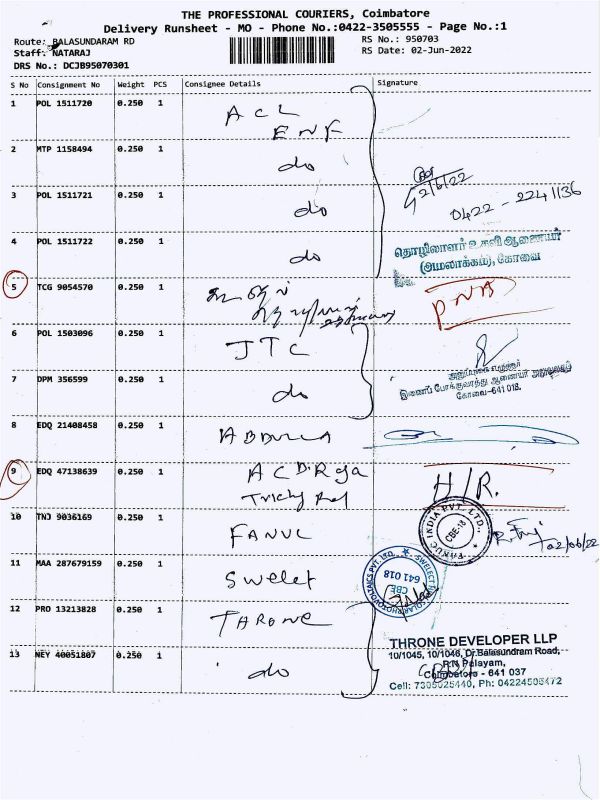 THE PROFESSIONAL COURIERS, Coimbatore
Delivery Runsheet - MO - Phone No.:0422-3505555 - Page No.:1
Route: BALASUNDARAM RD
RS No.: 950703
Staff: NATARAJ
RS Date: 02-Jun-2022
DRS No.: DCJB95070301
S No Consignment No Weight PCS Consignee Details Signature
1 POL 1511720 0.250 1 ACL
ENF
2 MTP 1158494 0.250 1 do
12/6/22
3 POL 1511721 0.250 1 do
0422 - 2241136
4 POL 1511722 0.250 1 do
தொழிலாளர் உதவி ஆணையர்
(அமலாக்கம்), கோவை
5 TCG 9054570 0.250 1
6 POL 1503096 0.250 1 JTC
7 DPM 356599 0.250 1 do
இணைப் போக்குவரத்து ஆணையர் அலுவலகம்
கோவை-641 018.
8 EDQ 21408458 0.250 1 ABDULLA
9 EDQ 47138639 0.250 1 ACDRoja
Trichy Rd
H/R.
10 TNJ 9036169 0.250 1 FANUC
FANUC INDIA PVT. LTD.,
CBE-18
02/06/22
11 MAA 287679159 0.250 1 Swelet
CBE
641 018
12 PRO 13213828 0.250 1 THRONE
THRONE DEVELOPER LLP
10/1045, 10/1046, Dr.Balasundram Road,
P.N Palayam,
Coimbatore - 641 037
Cell: 7305025440, Ph: 04224505472
13 NEY 40051807 0.250 1 do